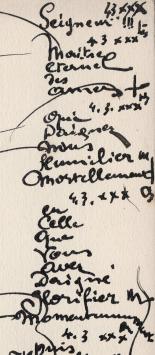 43 xxx
Seigneur !!!
43 xxx
Maître
éternel
des
âmes
4.3. xxx
Que
Daignez
nous
humilier
Mortellement
43. xxx
en
Celle
Que
Vous
avez
Daigné
Glorifier
4.3 xxx
Puis